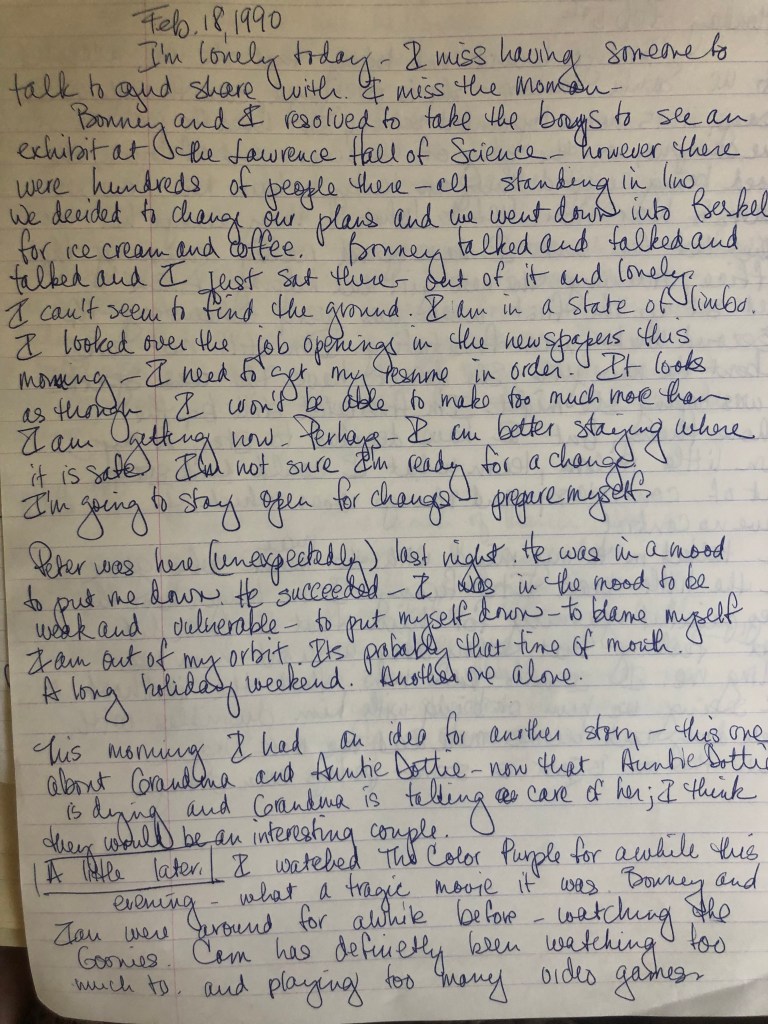 Feb. 18, 1990
I'm lonely today - I miss having someone to
talk to and share with. I miss the
Bonney and I resolved to take the boys to see an
exhibit at the Lawrence Hall of Science - however there
were hundreds of people there - all standing in line
we decided to change our plans and we went down into Berkel
for ice cream and coffee. Bonney talked and talked and
talked and I just sat there - out of it and lonely.
I can't seem to find the ground. I am in a state of limbo.
I looked over the job openings in the newspapers this
morning - I need to get my resume in order. It looks
as though I won't be able to make too much more than
I am getting now. Perhaps - I am better staying where
it is safe. I'm not sure I'm ready for a change.
I'm going to stay open for change - prepare myself.
Peter was here (unexpectedly) last night. He was in a mood
to put me down. He succeeded - I was in the mood to be
weak and vulnerable - to put myself down - to blame myself
I am out of my orbit. Its probably that time of month.
A long holiday weekend. Another one alone.
This morning I had an idea for another story - this one
about Grandma and Auntie Dottie - now that Auntie Dottie
is dying and Grandma is taking care of her; I think
they would be an interesting couple.
A little later. I watched The Color Purple for awhile this
evening - what a tragic movie it was. Bonney and
Ian were around for awhile before - watching the
Goonies. Cam has definetly been watching too
much tv. and playing too many video games